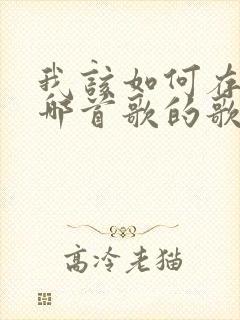 我该如何存
哪首歌的歌
高冷老猫